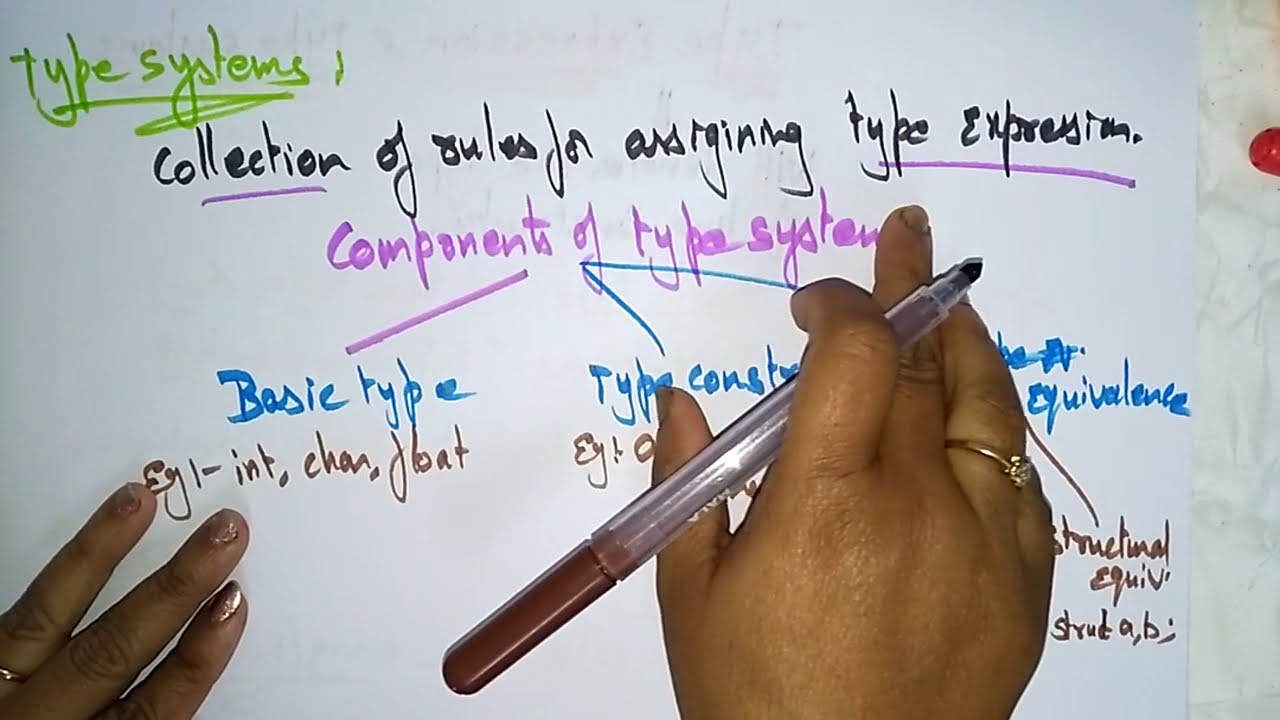 Type systems :
Collection of rules for assigining type Expression.
Components of type system
Basic type
Type const
Equivalence
Eg:- int, char, float
Eg:
structural
Equiv.
struct a, b;